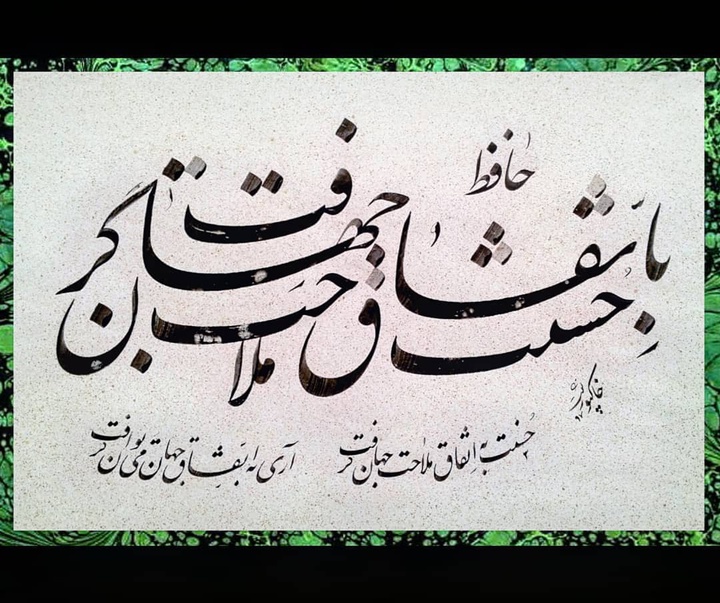 حافظ
حسنت باتفاق ملاحت جهان گرفت
خاکپور
حُسنت به اتّفاق ملاحت جهان گرفت آری به اتّفاق جهان می توان گرفت